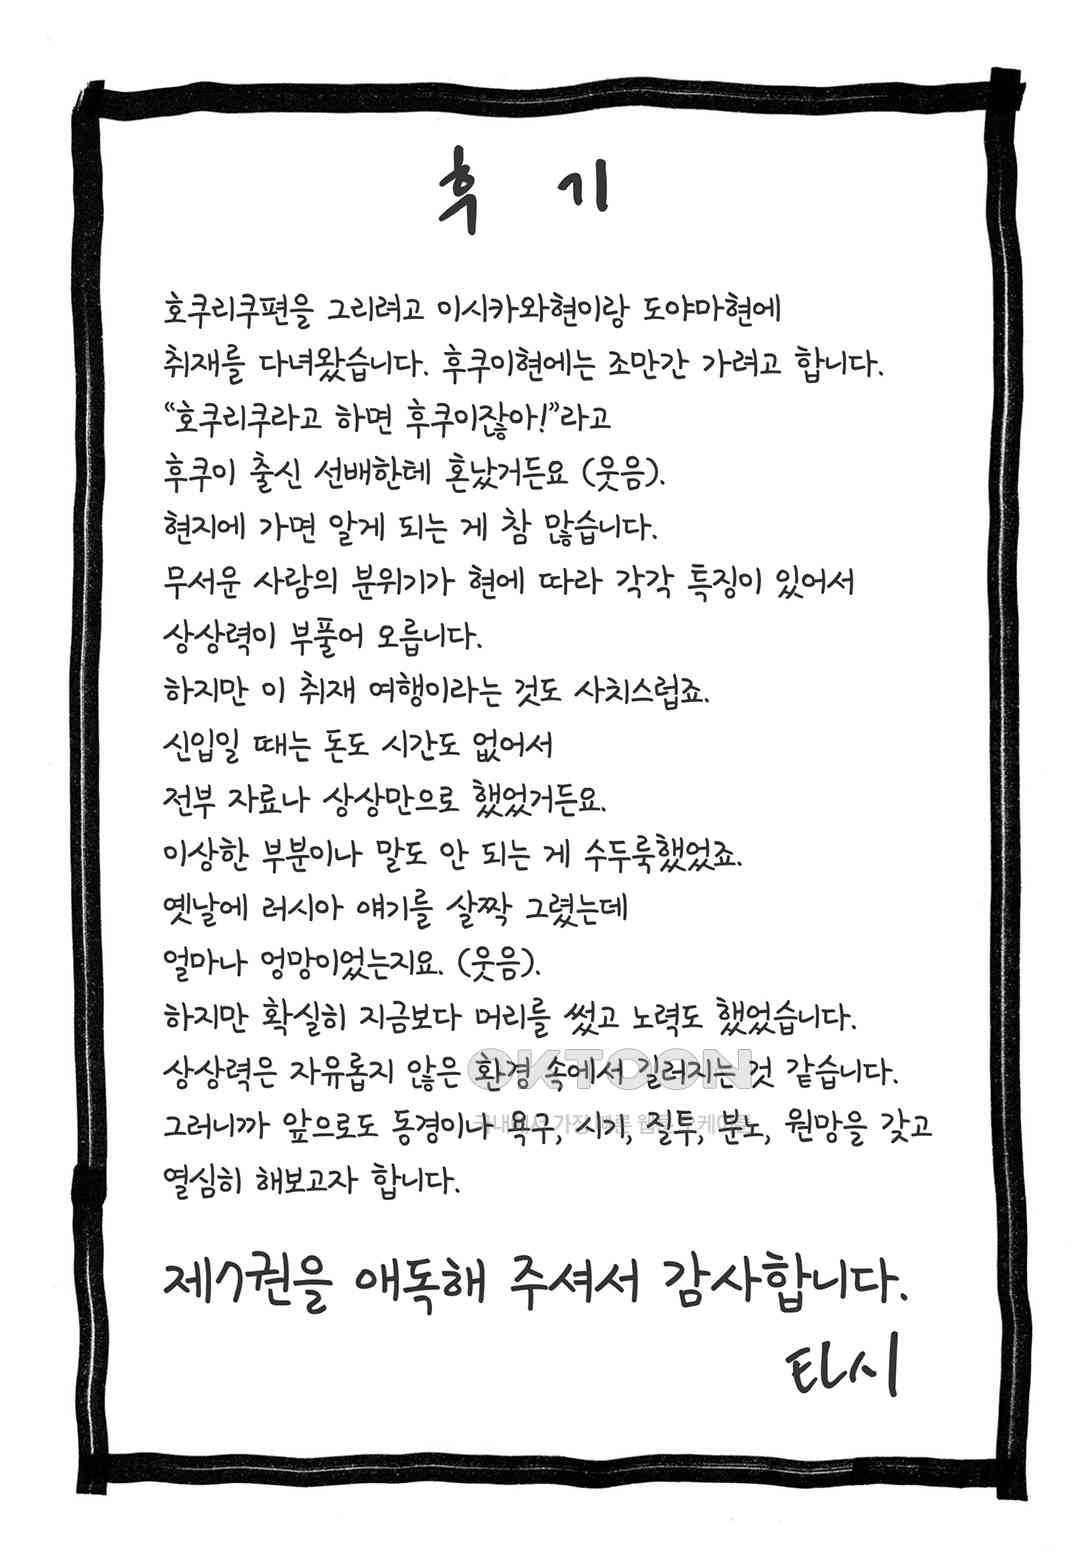 후 기
호쿠리쿠편을 그리려고 이시카와현이랑 도야마현에
취재를 다녀왔습니다. 후쿠이현에는 조만간 가려고 합니다.
“호쿠리쿠라고 하면 후쿠이잖아!”라고
후쿠이 출신 선배한테 혼났거든요 (웃음).
현지에 가면 알게 되는 게 참 많습니다.
무서운 사람의 분위기가 현에 따라 각각 특징이 있어서
상상력이 부풀어 오릅니다.
하지만 이 취재 여행이라는 것도 사치스럽죠.
신입일 때는 돈도 시간도 없어서
전부 자료나 상상만으로 했었거든요.
이상한 부분이나 말도 안 되는 게 수두룩했었죠.
옛날에 러시아 얘기를 살짝 그렸는데
얼마나 엉망이었는지요. (웃음).
하지만 확실히 지금보다 머리를 썼고 노력도 했었습니다.
상상력은 자유롭지 않은 환경 속에서 길러지는 것 같습니다.
OKTOON
그러니까 앞으로도 동경이나 욕구, 시기, 질투, 분노, 원망을 갖고
국내에서 가장 빠른 웹툰
열심히 해보고자 합니다.
제7권을 애독해 주셔서 감사합니다.
타시